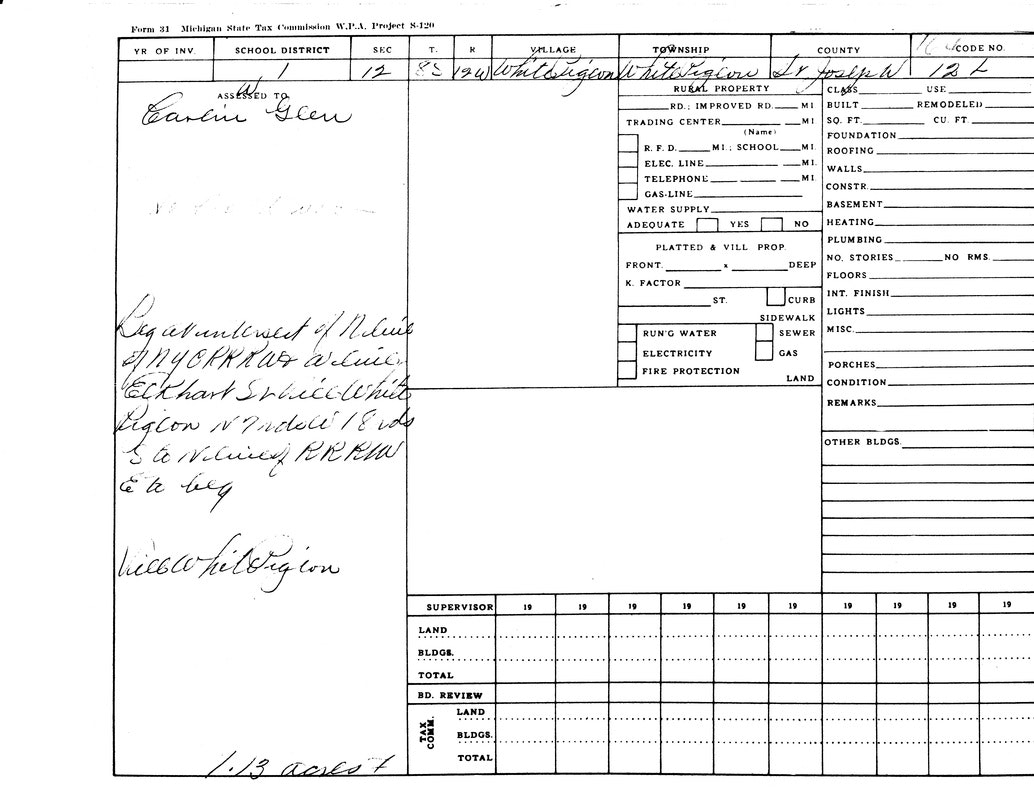 Form 31 Michigan State Tax Commission W.P.A. Project S-120
YR OF INV. SCHOOL DISTRICT SEC T. R VILLAGE TOWNSHIP COUNTY CODE NO.
1 12 8S 12W White Pigeon White Pigeon St Joseph 12 L
ASSESSED TO
Carlin Glen
Beg at intersect of N line
of NYCRRRW & W line
Eckhart St Vill White
Pigeon N 7 rds W 18 rds
S to N line of RRRW
E to beg
Vill White Pigeon
1.13 acres +
RURAL PROPERTY
RD.; IMPROVED RD. MI
TRADING CENTER MI
(Name)
R. F. D. MI.; SCHOOL MI.
ELEC. LINE MI.
TELEPHONE MI.
GAS-LINE
WATER SUPPLY
ADEQUATE YES NO
PLATTED & VILL. PROP.
FRONT. x DEEP
K. FACTOR
ST. CURB
SIDEWALK
RUN'G WATER SEWER
ELECTRICITY GAS
FIRE PROTECTION
LAND
CLASS USE
BUILT REMODELED
SQ. FT. CU. FT.
FOUNDATION
ROOFING
WALLS
CONSTR.
BASEMENT
HEATING
PLUMBING
NO. STORIES NO RMS.
FLOORS
INT. FINISH
LIGHTS
MISC.
PORCHES
CONDITION
REMARKS
OTHER BLDGS.
SUPERVISOR 19 19 19 19 19 19 19 19 19 19
LAND
BLDGS.
TOTAL
BD. REVIEW
TAX COMM.
LAND
BLDGS.
TOTAL